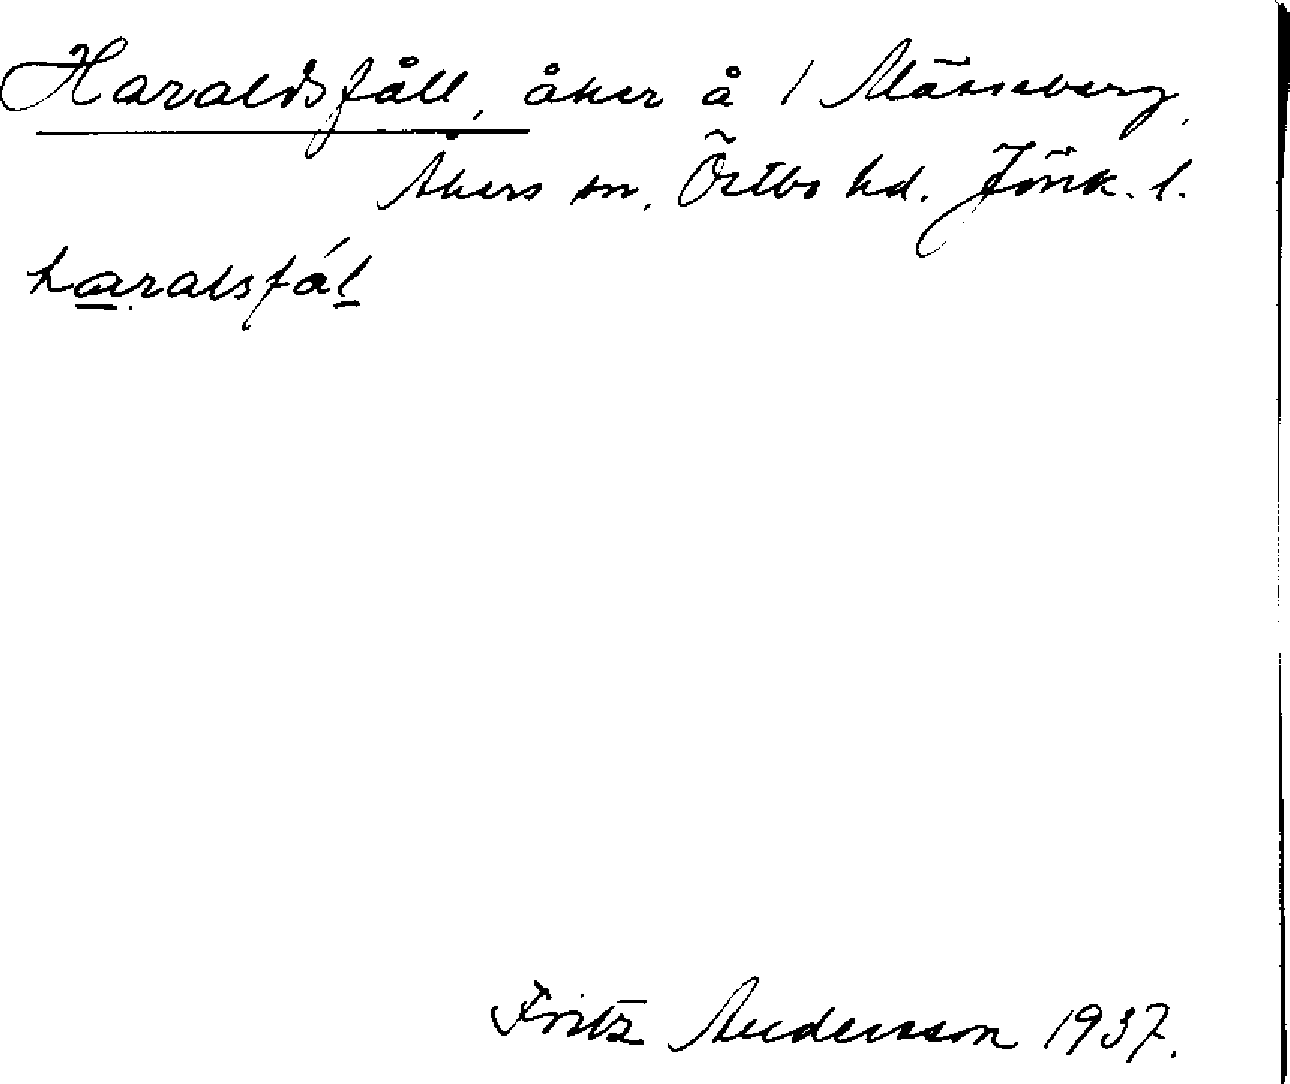 Haraldsfåll, åker å 1 Mässeberg,
Åkers sn. Östbo hd. Jönk. l.
haralsfål
Fritz Andersson 1937.